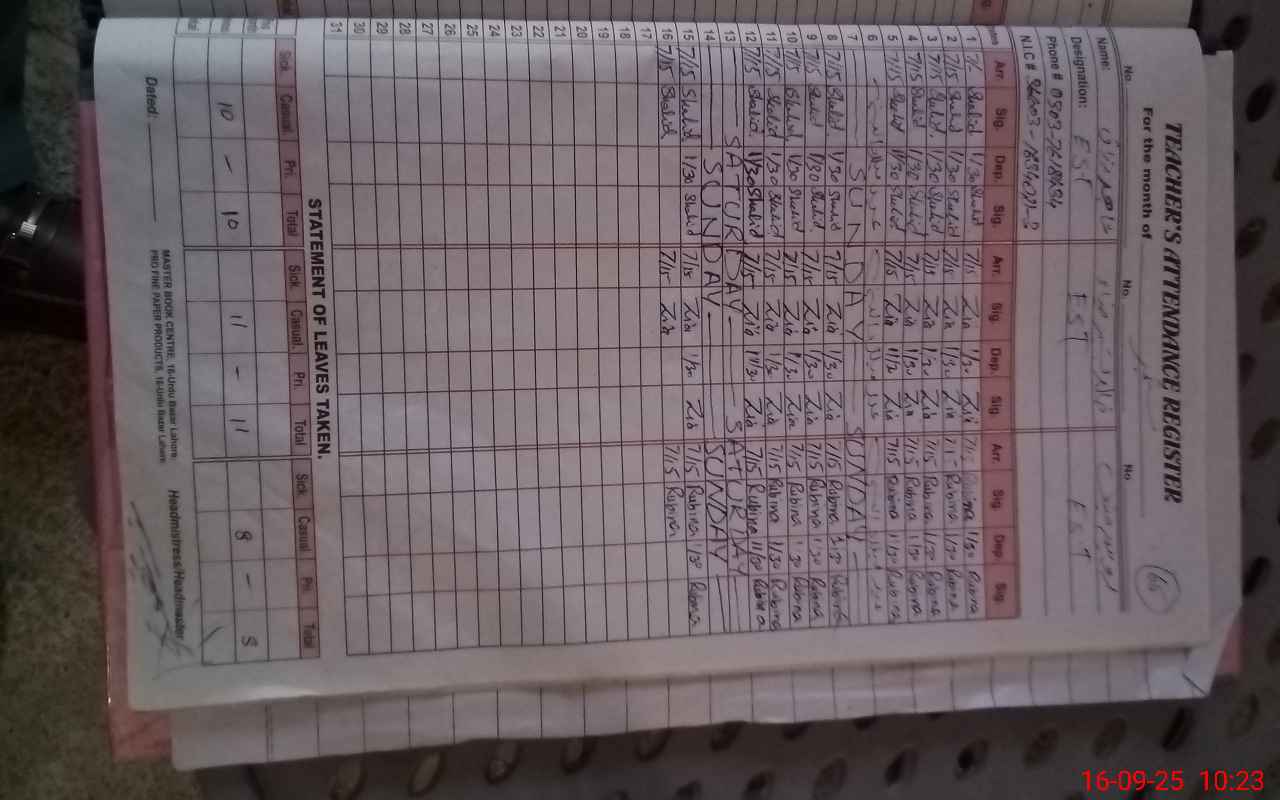 TEACHER'S ATTENDANCE REGISTER
66
For the month of
No. No. No
Name:
Designation: EST EST EST
Phone #
N.I.C #
Arr. Sig. Dep. Sig. Arr. Sig. Dep Sig. Arr. Sig. Dep Sig.
1 Shahid 1/30 Shahid 7/15 Zia 1/30 Zia 1/30 Rubina
2 7/15 Shahid 1/30 Shahid 7/15 Zia 1/30 Zia 7/15 Rubina 1/30 Rubina
3 7/15 Shahid 1/30 Shahid 7/15 Zia 1/30 Zia 7/15 Rubina 1/30 Rubina
4 7/15 Shahid 1/30 Shahid 7/15 Zia 1/30 Zia 7/15 Rubina 1/30 Rubina
5 7/15 Shahid 1/30 Shahid 7/15 Zia 1/30 Zia 7/15 Rubina 1/30 Rubina
6
7 SUNDAY SUNDAY
8 7/15 Shahid 1/30 Shahid 7/15 Zia 1/30 Zia 7/15 Rubina 1/30 Rubina
9 7/15 Shahid 1/30 Shahid 7/15 Zia 1/30 Zia 7/15 Rubina 1/30 Rubina
10 7/15 Shahid 1/30 Shahid 7/15 Zia 1/30 Zia 7/15 Rubina 1/30 Rubina
11 7/15 Shahid 1/30 Shahid 7/15 Zia 1/30 Zia 7/15 Rubina 1/30 Rubina
12 7/15 Shahid 1/30 Shahid 7/15 Zia 11/30 Zia 7/15 Rubina 11/30 Rubina
13 SATURDAY SATURDAY
14 SUNDAY SUNDAY
15 7/15 Shahid 1/30 Shahid 7/15 Zia 1/30 Zia 7/15 Rubina 1/30 Rubina
16 7/15 Shahid 7/15 Zia 7/15 Rubina
17
18
19
20
21
22
23
24
25
26
27
28
29
30
31
STATEMENT OF LEAVES TAKEN.
Sick. Casual. Pri. Total Sick. Casual. Pri. Total Sick. Casual Pri. Total
10 - 10 11 - 11 8 - 8
Dated:
MASTER BOOK CENTRE, 16-Urdu Bazar Lahore.
PRO FINE PAPER PRODUCTS, 16-Urdu Bazar Lahore.
Headmistress/Headmaster
16-09-25 10:23